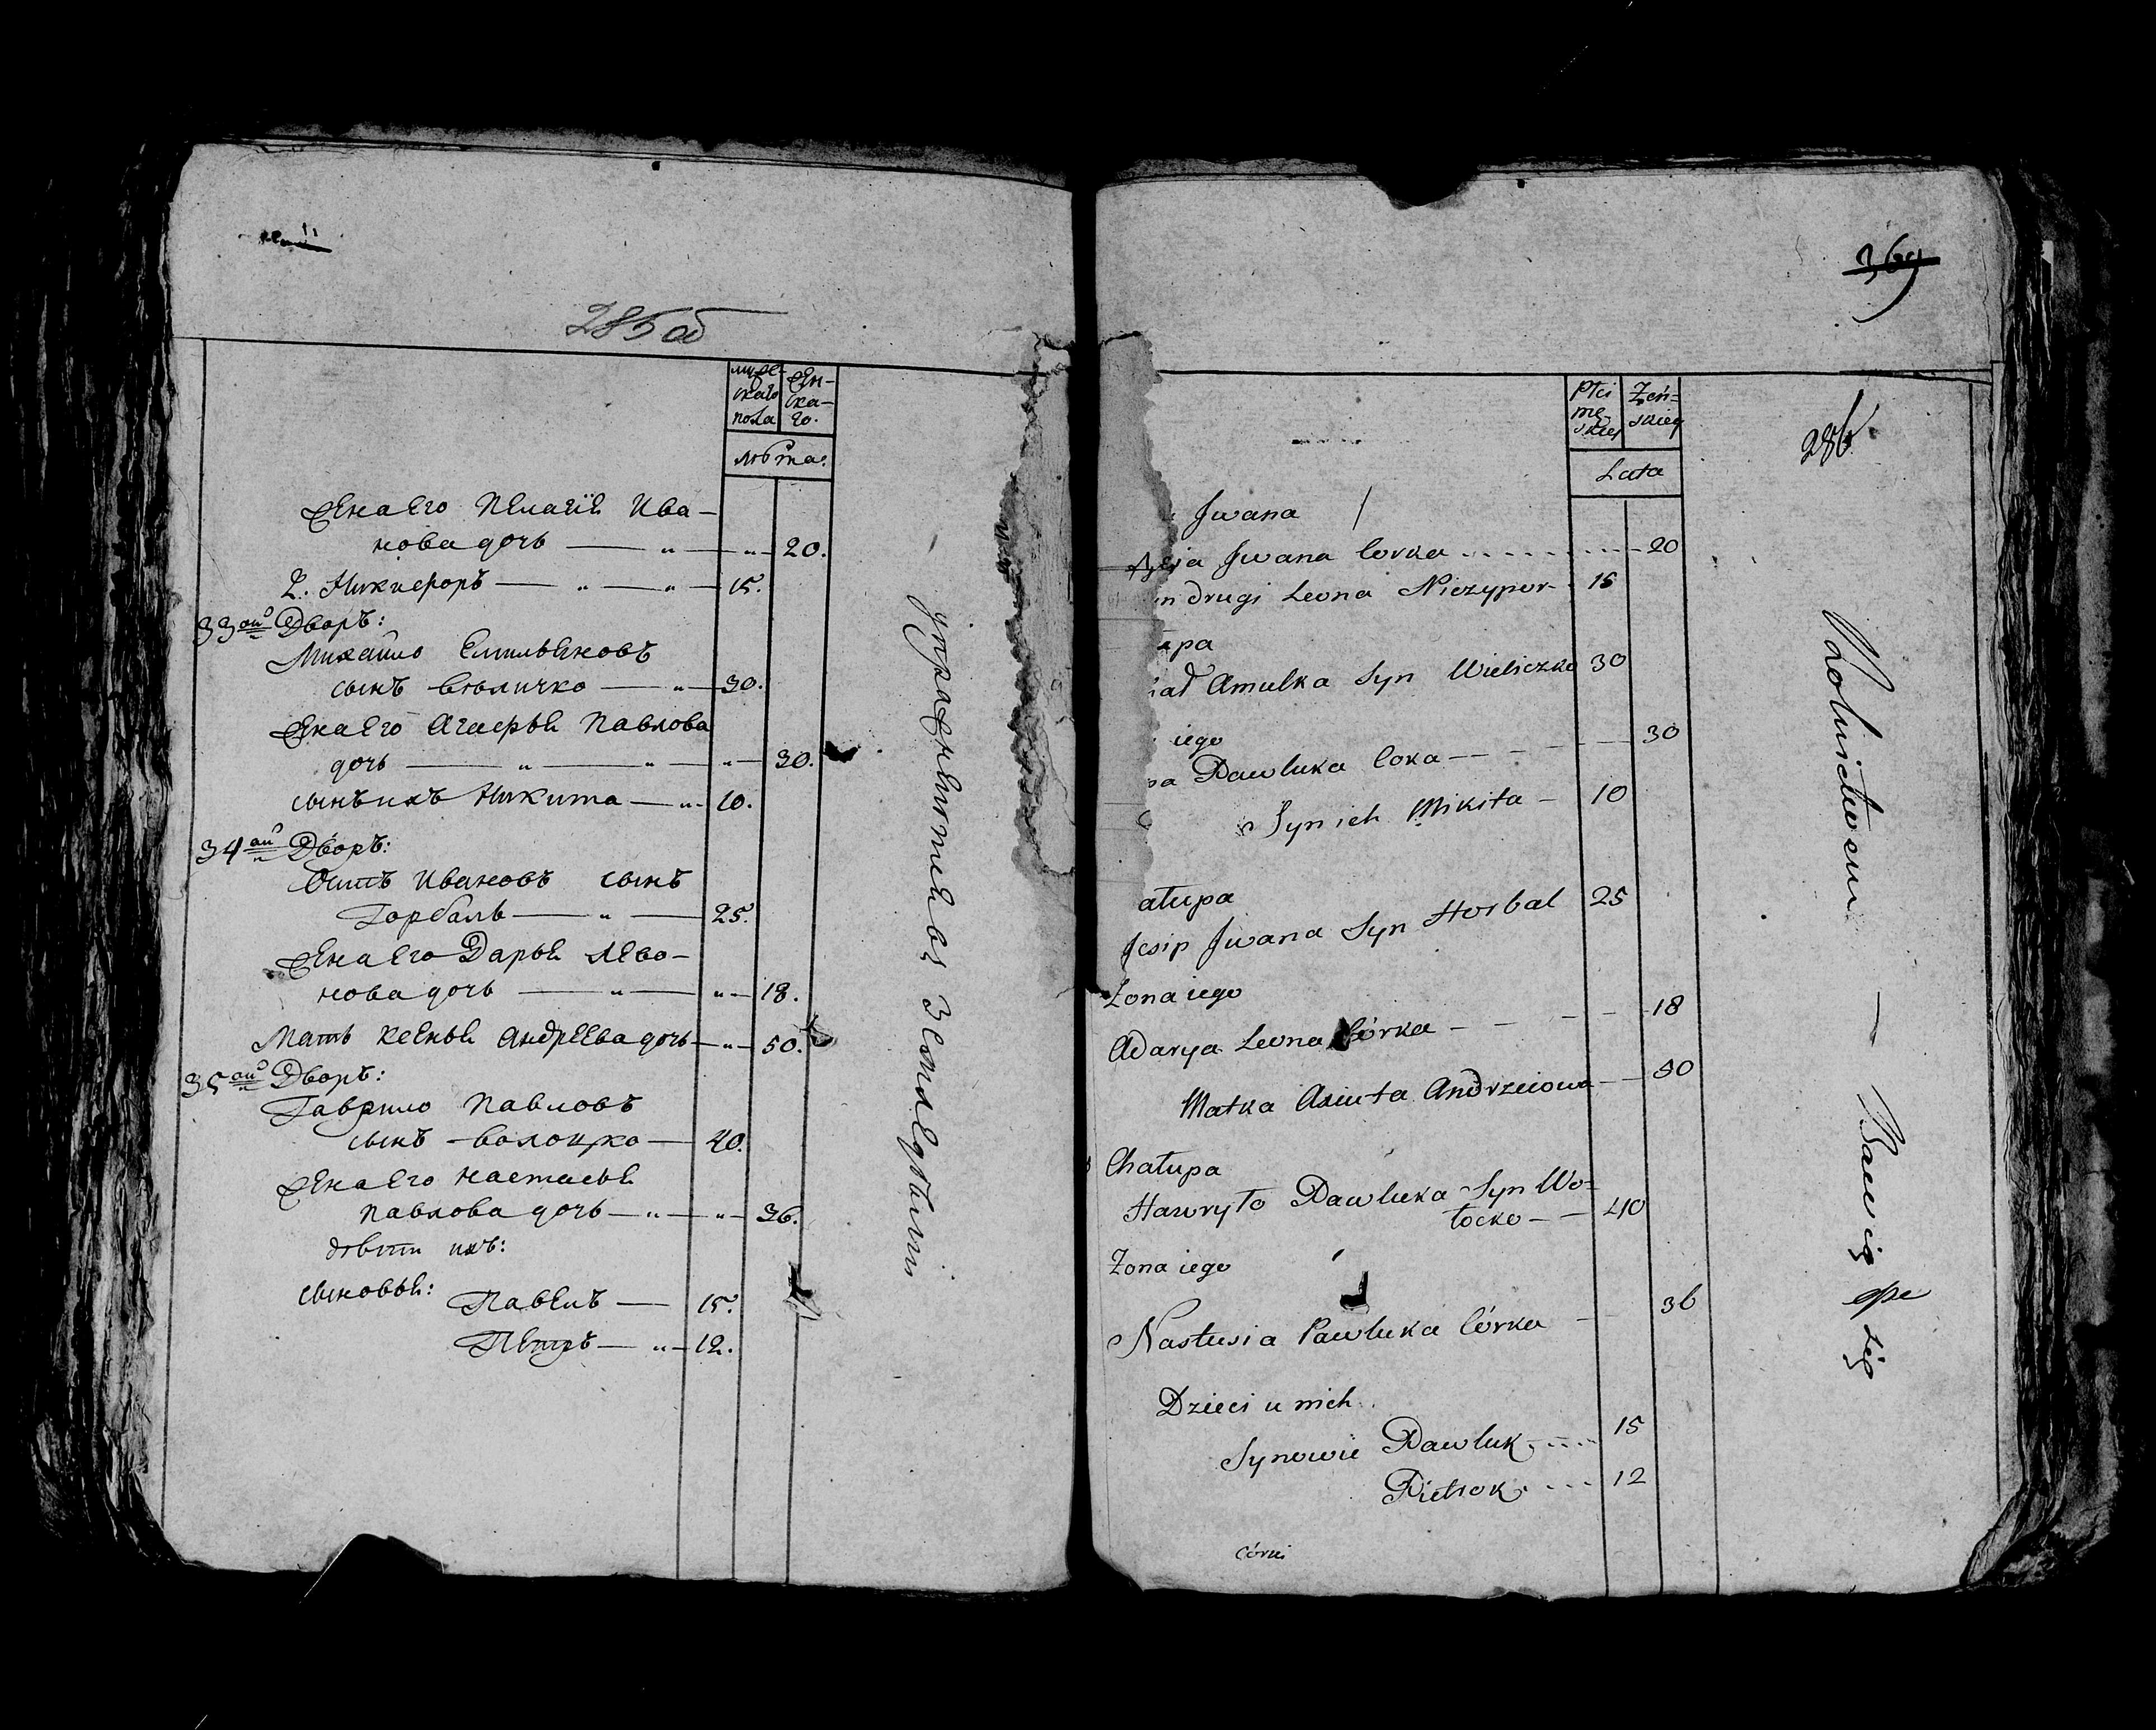 285 об
мужескаго пола
женскаго.
лѣта.
Жена Его Пелагія Ива-
нова дочь — „ — „ — 20.
2. Никифоръ — „ — „ — 15.
33ой Дворъ:
Михайло Емильяновъ
сынъ Величко — „ — 30.
Жена Его Агафья Павлова
дочь — „ — „ — „ — 30.
сынъ ихъ Никита — „ — 10.
34ой Дворъ:
Осипъ Ивановъ сынъ
Горбаль — „ — 25.
Жена Его Дарья Лево-
нова дочь — „ — „ — 18.
Мать Ксенья Андреева дочь — „ — 50.
35ой Дворъ:
Гаврило Павловъ
сынъ Волоцко — 40.
Жена Его Настасья
Павлова дочь — „ — „ — 36.
дѣти ихъ:
сыновья: Павелъ — 15.
Петръ — „ — 12.
упражняются въ Земледѣлии
369
286
Płci męskiej
Żeńskiey
Lata
Jwana /
Jwana Corka - - - - 20
drugi Leona Niczypor - 15
upa
Amulka Syn Wieliczko 30
iego
Pawluka Coka — - - — 30
Syn ich Mikita — 10
ałupa
Jesip Jwana Syn Horbal 25
Żona iego
Adarya Leona Córka - - - - 18
Matka Axiuta Andrzeiowa — 50
Chałupa
Hawryło Pawluka Syn Wo=
łocko — — 40
Żona iego
Nastusia Pawluka Córka - 36
Dzieci u nich
Synowie Pawluk - - - 15
Pietrok - - - 12
Córki
Rolnictwem — Bawią się